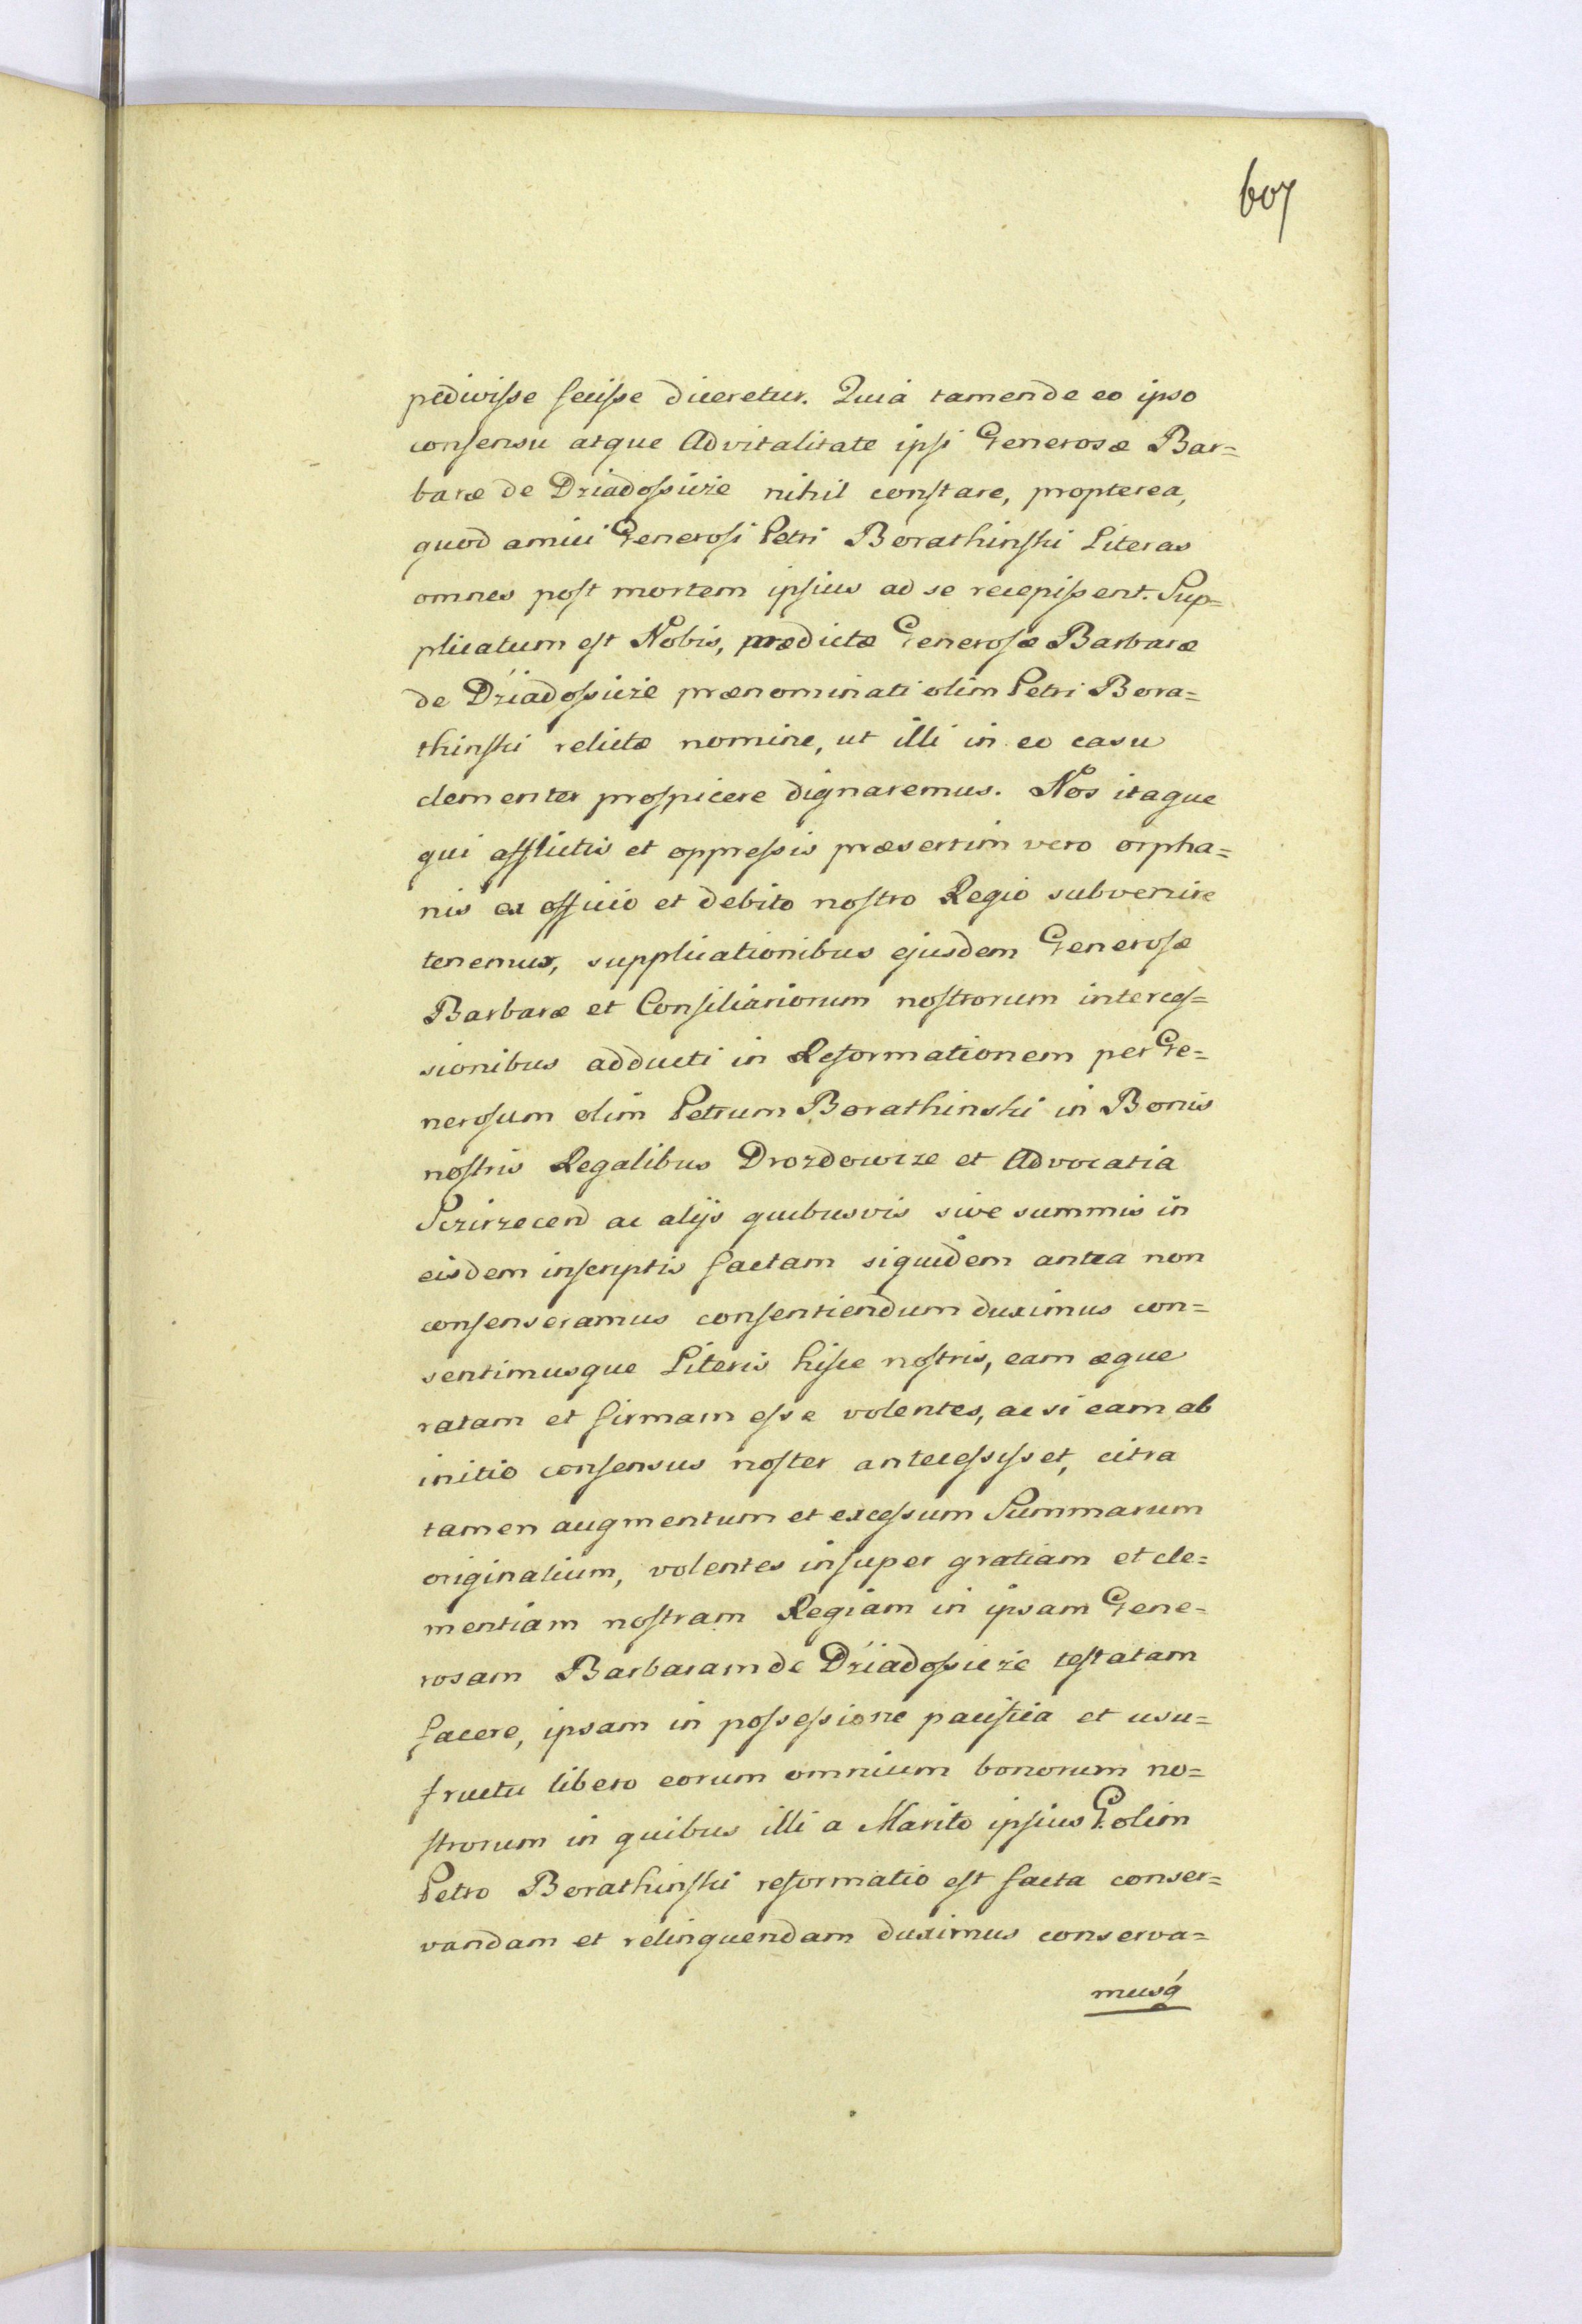 607
pedivisse fecisse diceretur. Quia tamen de eo ipso
consensu atque Advitalitate ipsi Generosæ Bar=
baræ de Dziadossicze nihil constare, propterea,
quod amici Generosi Petri Borathinski Literas
omnes post mortem ipsius ad se recepissent. Sup=
plicatum est Nobis, prædictæ Generosæ Barbaræ
de Dziadossicze prænominati olim Petri Bora=
thinski relictæ nomine, ut illi in eo casu
clementer prospicere dignaremus. Nos itaque
qui afflictis et oppressis præsertim vero orpha=
nis ex officio et debito nostro Regio subvenire
tenemur, supplicationibus ejusdem Generosæ
Barbaræ et Consiliariorum nostrorum interces=
sionibus adducti in Reformationem per Ge=
nerosum olim Petrum Borathinski in Bonis
nostris Regalibus Drozdowize et Advocatia
Sczirzecen ac alijs quibusvis sive summis in
eisdem inscriptis factam siquidem antea non
consenseramus consentiendum duximus con=
sentimusque Literis hisce nostris, eam æque
ratam et firmam esse volentes, ac si eam ab
initio consensus noster antecessisset, citra
tamen augmentum et excessum Summarum
originalium, volentes insuper gratiam et cle=
mentiam nostram Regiam in ipsam Gene=
rosam Barbaram de Dziadossicze testatam
facere, ipsam in possessione pacifica et usu=
fructu libero eorum omnium bonorum no=
strorum in quibus illi a Marito ipsius G. olim
Petro Borathinski reformatio est facta conser=
vandam et relinquendam duximus conserva=
musq́